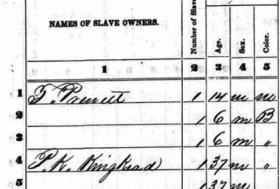 NAMES OF SLAVE OWNERS. Number of Slaves Age. Sex. Color.
1 2 3 4 5
1 T. Prewett 1 14 m
2 1 6 m B
3 1 6 m "
4 P. K. Kingkead 1 37 m "
5 1 37 m